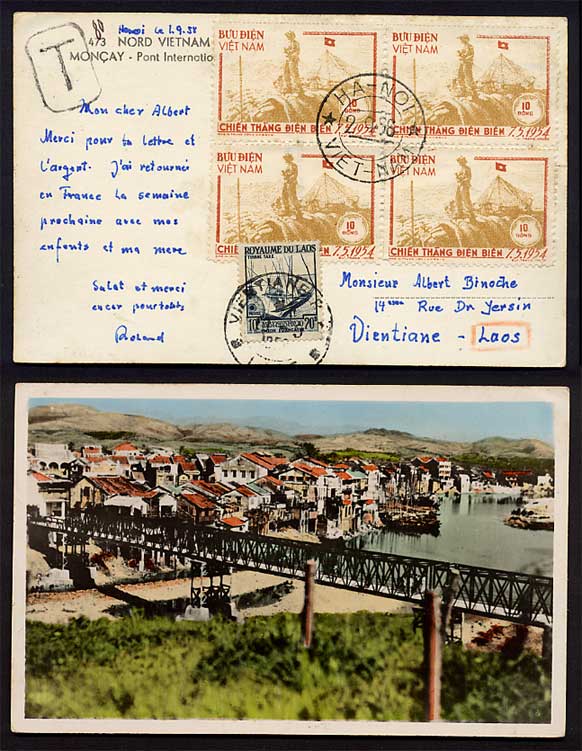 Hanoi le 1.9.58
473 NORD VIETNAM
MONÇAY - Pont Internatio
T
Mon cher Albert
Merci pour ta lettre et
l'argent. J'ai retournei
en France la semaine
prochaine avec mos
enfants et ma mere
Salut et merci
encor pour totüts
Roland
BƯU ĐIỆN
VIỆT NAM
10
ĐỒNG
CHIẾN THẮNG ĐIỆN BIÊN 7.5.1954
BƯU ĐIỆN
VIỆT NAM
10
ĐỒNG
CHIẾN THẮNG ĐIỆN BIÊN 7.5.1954
BƯU ĐIỆN
VIỆT NAM
10
ĐỒNG
CHIẾN THẮNG ĐIỆN BIÊN 7.5.1954
10
ĐỒNG
CHIẾN THẮNG ĐIỆN BIÊN 7.5.1954
HA-NOI
VIET-NAM
ROYAUME DU LAOS
TIMBRE TAXE
10c
UNION FRANÇAISE
VIENTIANE
Monsieur Albert Binoche
14eme Rue Dr Yersin
Vientiane - Laos